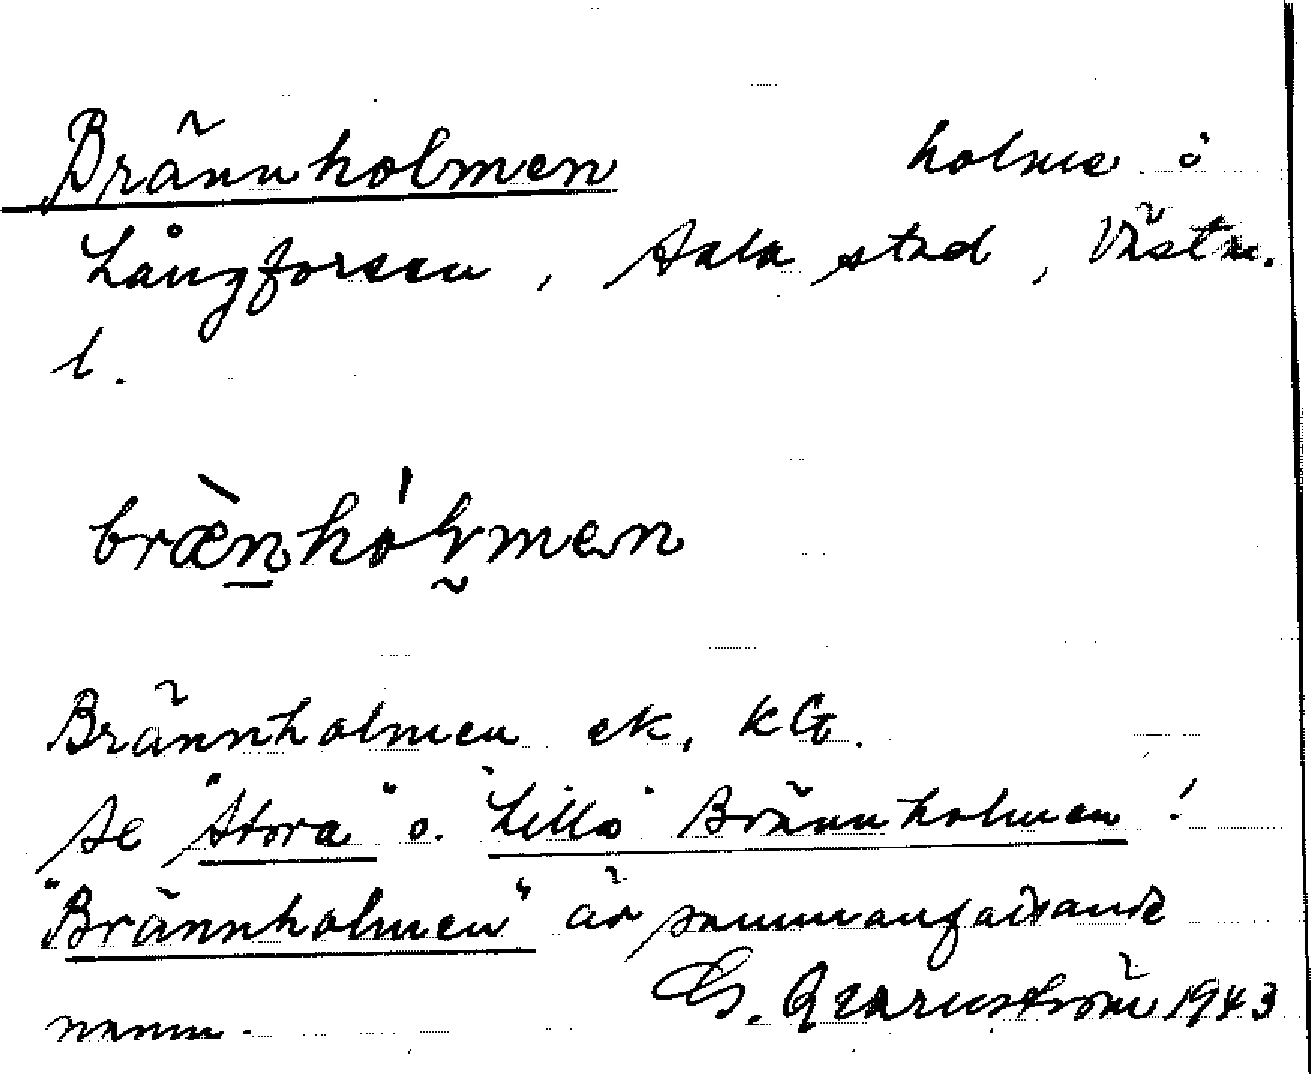 Brännholmen holme i
Långforsen, Sala stad, Västm.
l.
bræ̀nhólmen
Brännholmen ek, KG.
Se "Stora" o. "Lilla" Brännholmen!
"Brännholmen" är sammanfattande
namn. G. Qvarnström 1943